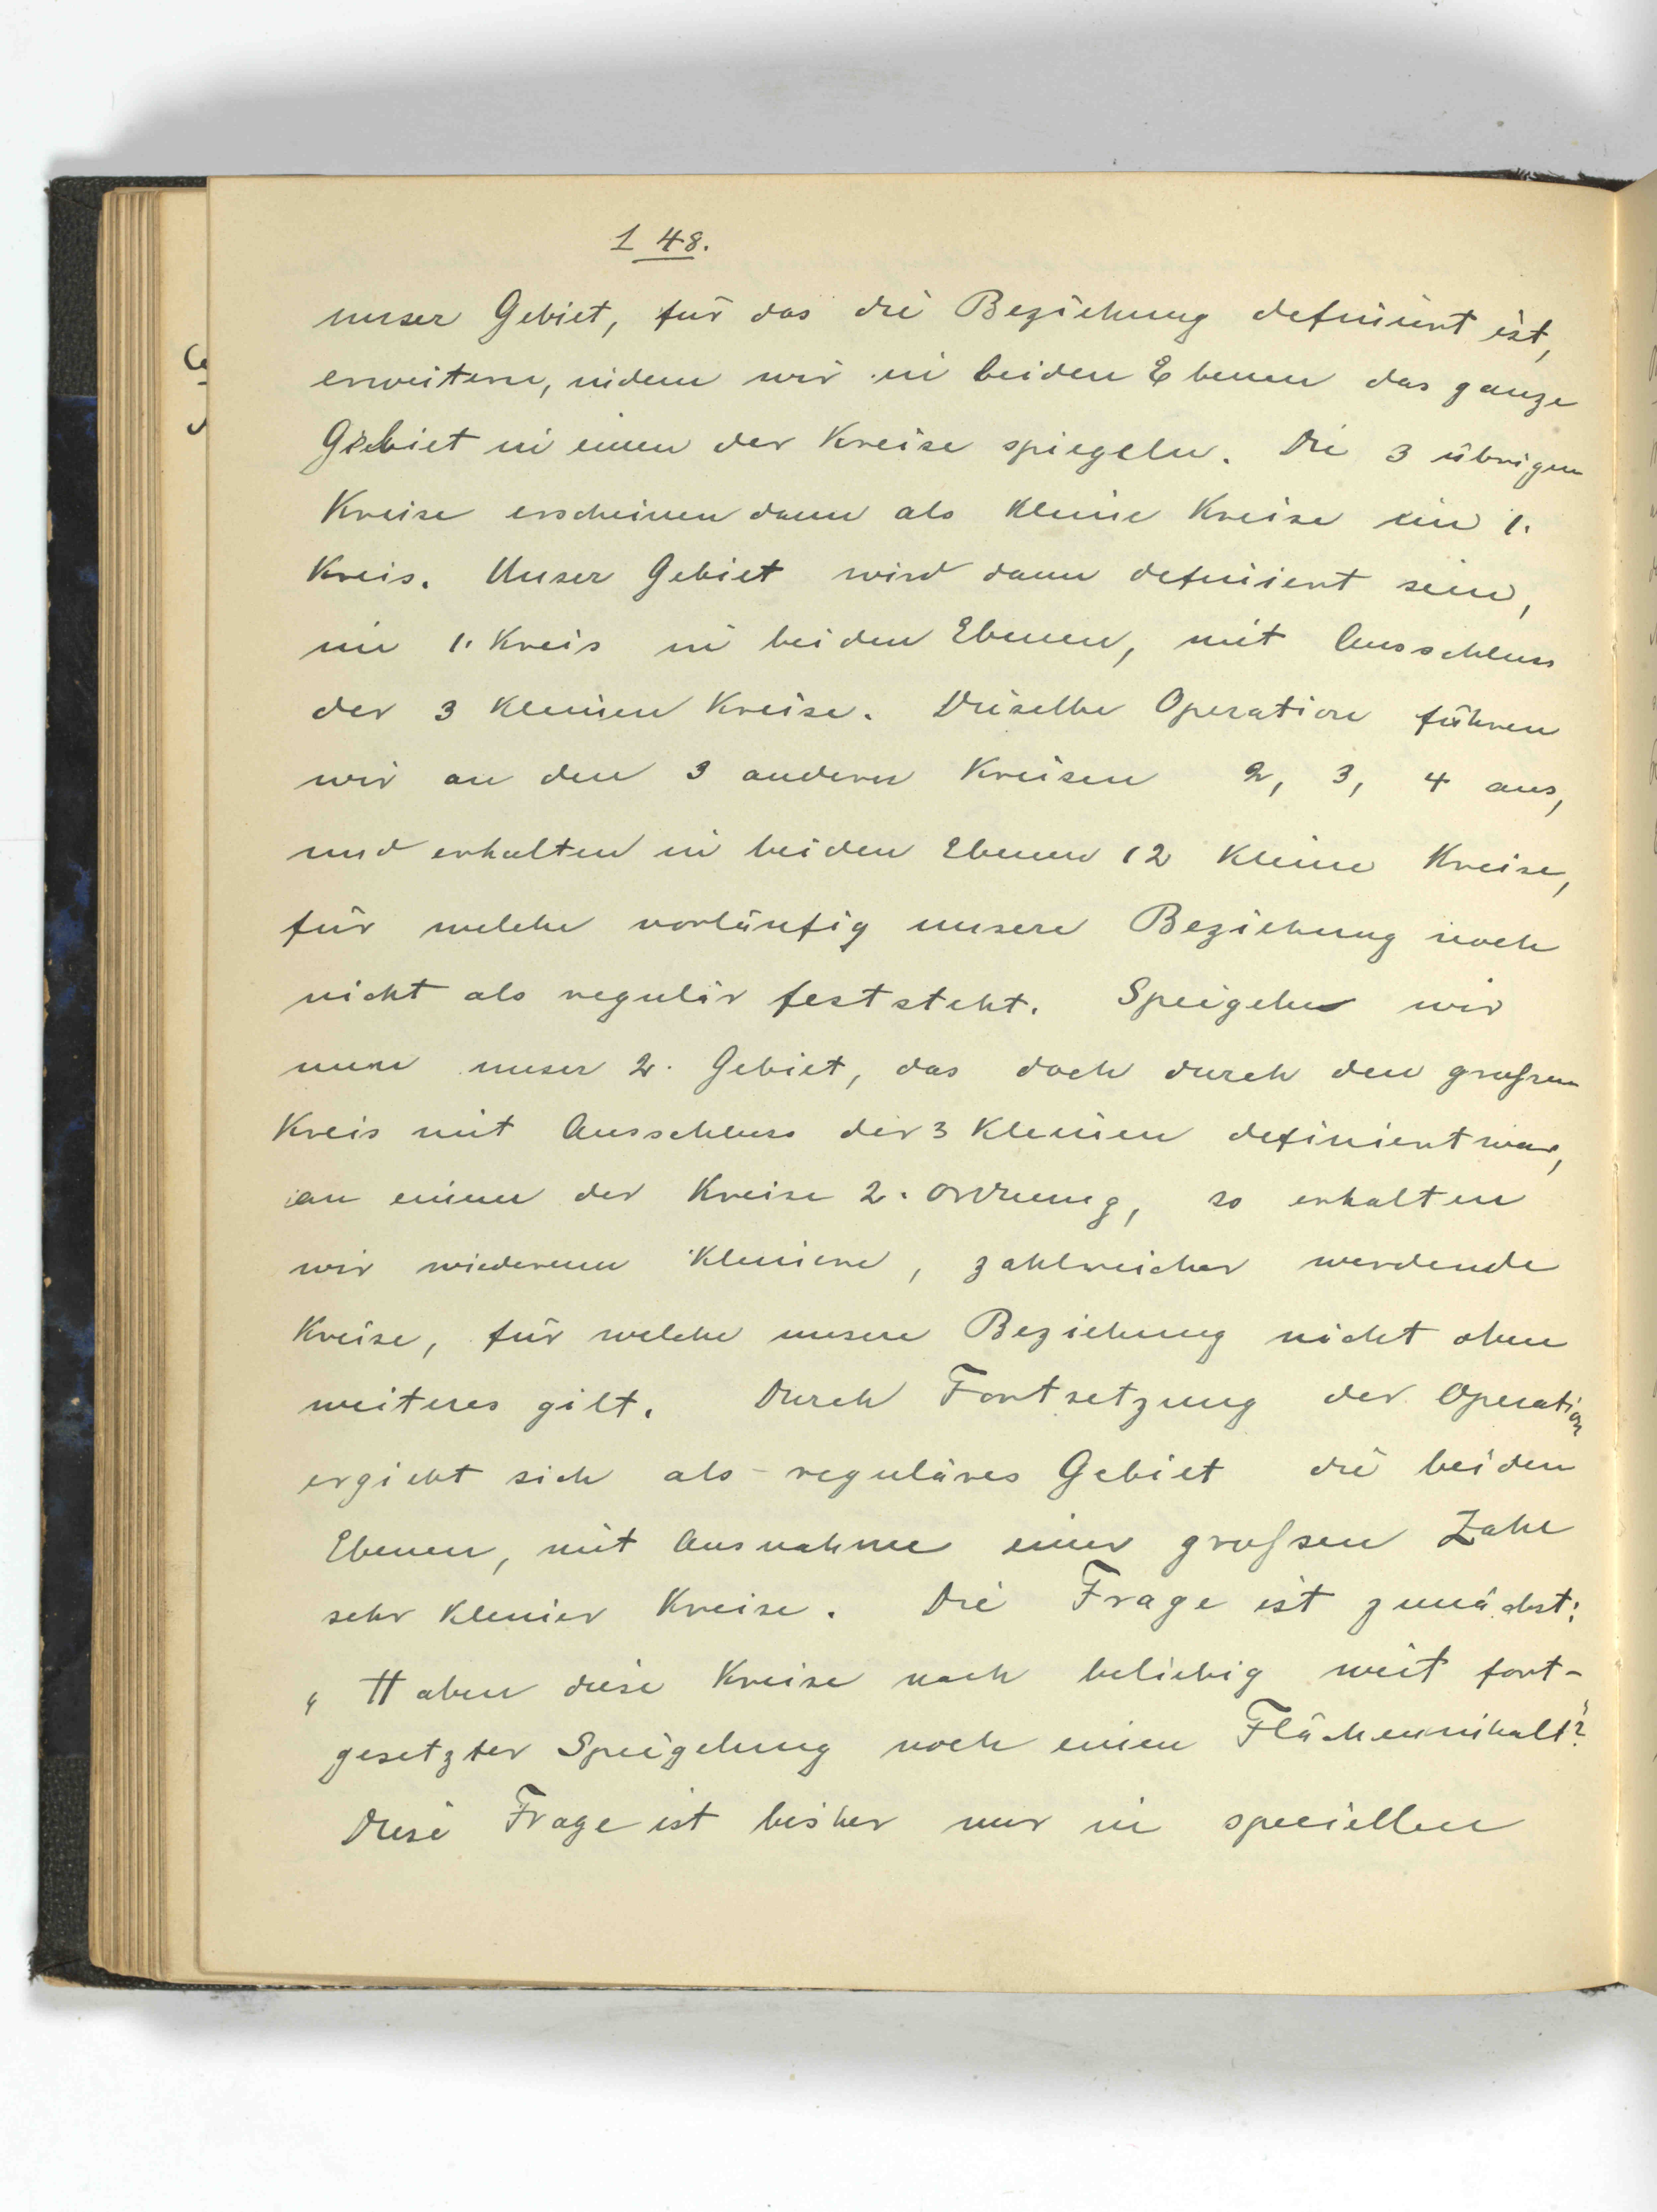 148.
unser Gebiet, für das die Beziehung definiert ist,
erweitern, indem wir in beiden Ebenen das ganze
Gebiet in einen der Kreise spiegeln. Die 3 übrigen
Kreise erscheinen dann als kleine Kreise im 1.
Kreis. Unser Gebiet wird dann definiert sein,
im 1. Kreis in beiden Ebenen, mit Ausschluss
der 3 kleinen Kreise. Dieselbe Operation führen
wir an den 3 anderen Kreisen 2, 3, 4 aus,
und erhalten in beiden Ebenen 12 kleine Kreise,
für welche vorläufig unsere Beziehung noch
nicht als regulär feststeht. Spiegeln wir
nun unser 2. Gebiet, das doch durch den großen
Kreis mit Ausschluss der 3 kleinen definiert war,
an einem der Kreise 2. Ordnung, so erhalten
wir wiederum kleinere, zahlreicher werdende
Kreise, für welche unsere Beziehung nicht ohne
weiteres gilt. Durch Fortsetzung der Operation
ergiebt sich als reguläres Gebiet die beiden
Ebenen, mit Ausnahme einer großen Zahl
sehr kleiner Kreise. Die Frage ist zunächst:
„Haben diese Kreise nach beliebig weit fort-
gesetzter Spiegelung noch einen Flächeninhalt?"
Diese Frage ist bisher nur in speciellen